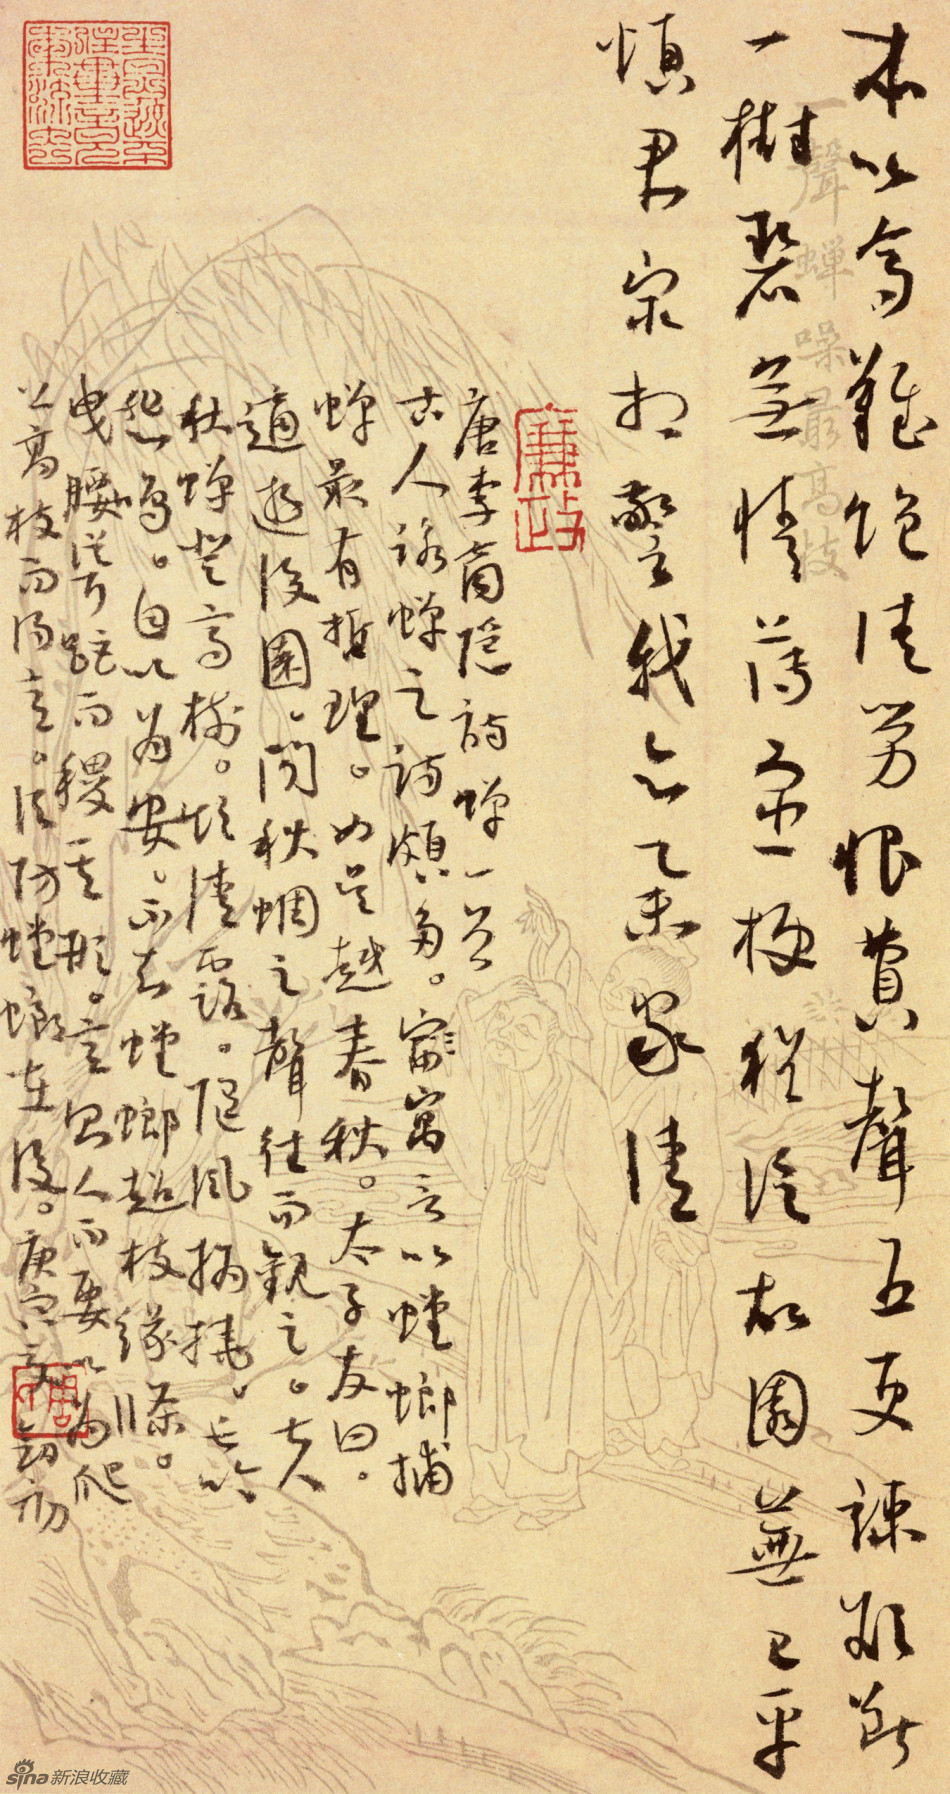 本以高難飽徒勞恨費聲五更疎欲斷
一樹碧無情薄宦梗猶泛故園蕪已平
煩君最相警我亦舉家清
唐李商隱詩蟬一首
古人詠蟬之詩頗多。寓言以螳螂捕
蟬最有哲理。如吳越春秋。太子友曰。
適遊後園。聞秋蜩之聲往而觀之。夫
秋蟬登高樹。飲清露。隨風撝撓。長吟
悲鳴。自以為安。不知螳螂超枝緣條。
曳腰聳距而稷其形。
之高枝而得意。須防螳螂在後。庚寅夏
一聲蟬噪最高枝
廉政
sina新浪收藏